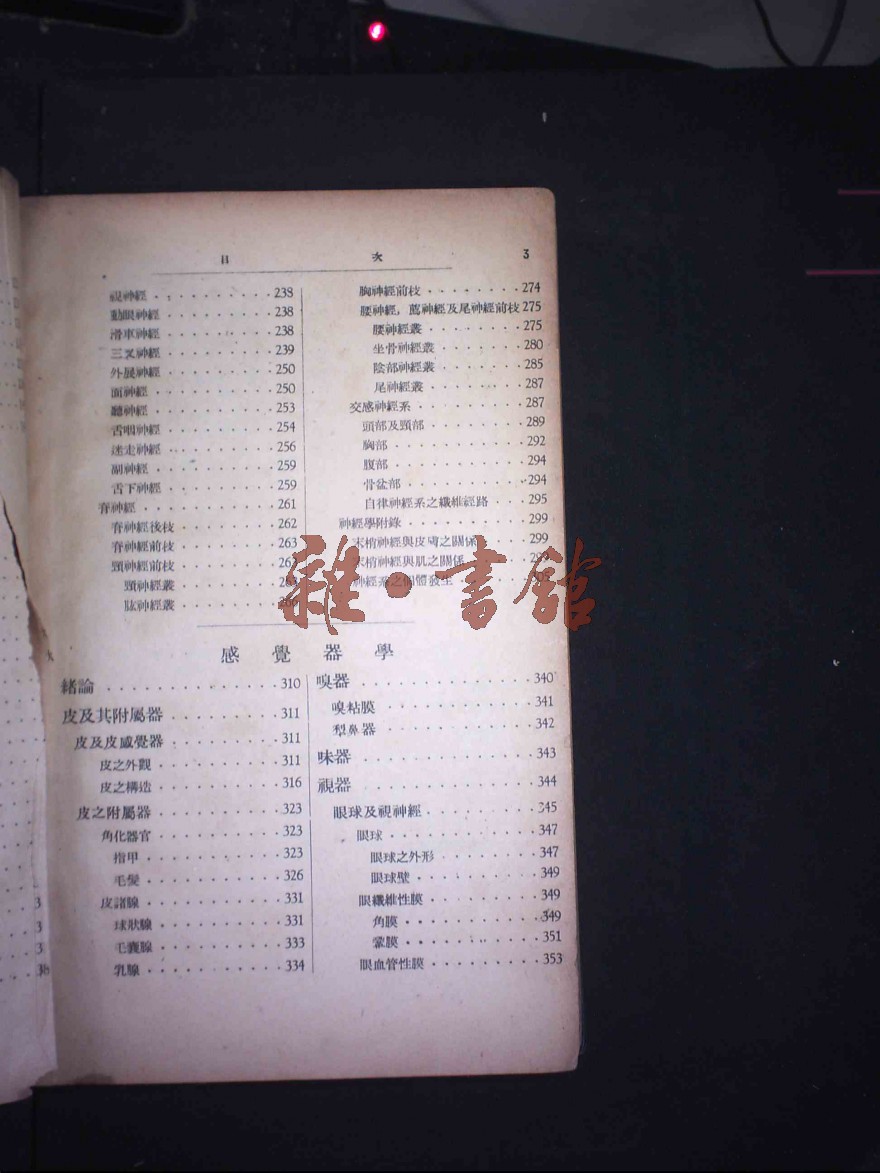 目 次 3
視神經 238
動眼神經 238
滑車神經 238
三叉神經 239
外展神經 250
面神經 250
聽神經 253
舌咽神經 254
迷走神經 256
副神經 259
舌下神經 259
脊神經 261
脊神經後枝 262
脊神經前枝 263
頸神經前枝
頸神經叢
肱神經叢
胸神經前枝 274
腰神經，薦神經及尾神經前枝 275
腰神經叢 275
坐骨神經叢 280
陰部神經叢 285
尾神經叢 287
交感神經系 287
頭部及頸部 289
胸部 292
腹部 294
骨盆部 294
自律神經系之纖維經路 295
神經學附錄 299
末梢神經與皮膚之關係 299
末梢神經與肌之關係
神經系之個體發生
雜·書館
感覺器學
緒論 310
皮及其附屬器 311
皮及皮感覺器 311
皮之外觀 311
皮之構造 316
皮之附屬器 323
角化器官 323
指甲 323
毛髮 326
皮諸腺 331
球狀腺 331
毛囊腺 333
乳腺 334
嗅器 340
嗅粘膜 341
犁鼻器 342
味器 343
視器 344
眼球及視神經 345
眼球 347
眼球之外形 347
眼球壁 349
眼纖維性膜 349
角膜 349
鞏膜 351
眼血管性膜 353